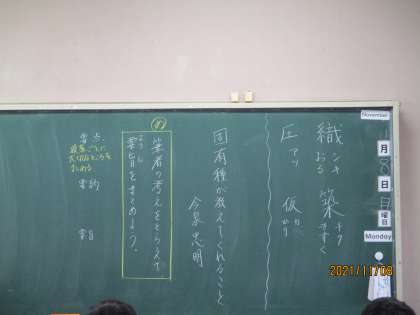 November
11月8日
曜日
Monday
織 シキ おる
築 チク きずく
圧 アツ
仮 カ かり
固有種が教えてくれること
今泉忠明
め
筆者の考えをとらえて
要旨をまとめよう。
ようし
要点
段落ごとに
大切なところを
まとめる
要約
要旨
2021/11/08